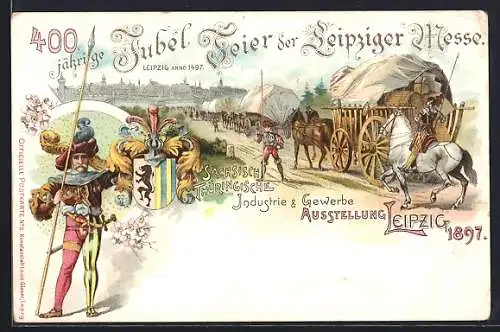 400
jährige Jubel Feier der Leipziger Messe.
LEIPZIG ANNO 1497.
SÄCHSISCH
THÜRINGISCHE
Industrie & Gewerbe
AUSSTELLUNG
LEIPZIG
1897.
OFFICIELLE POSTKARTE No 5